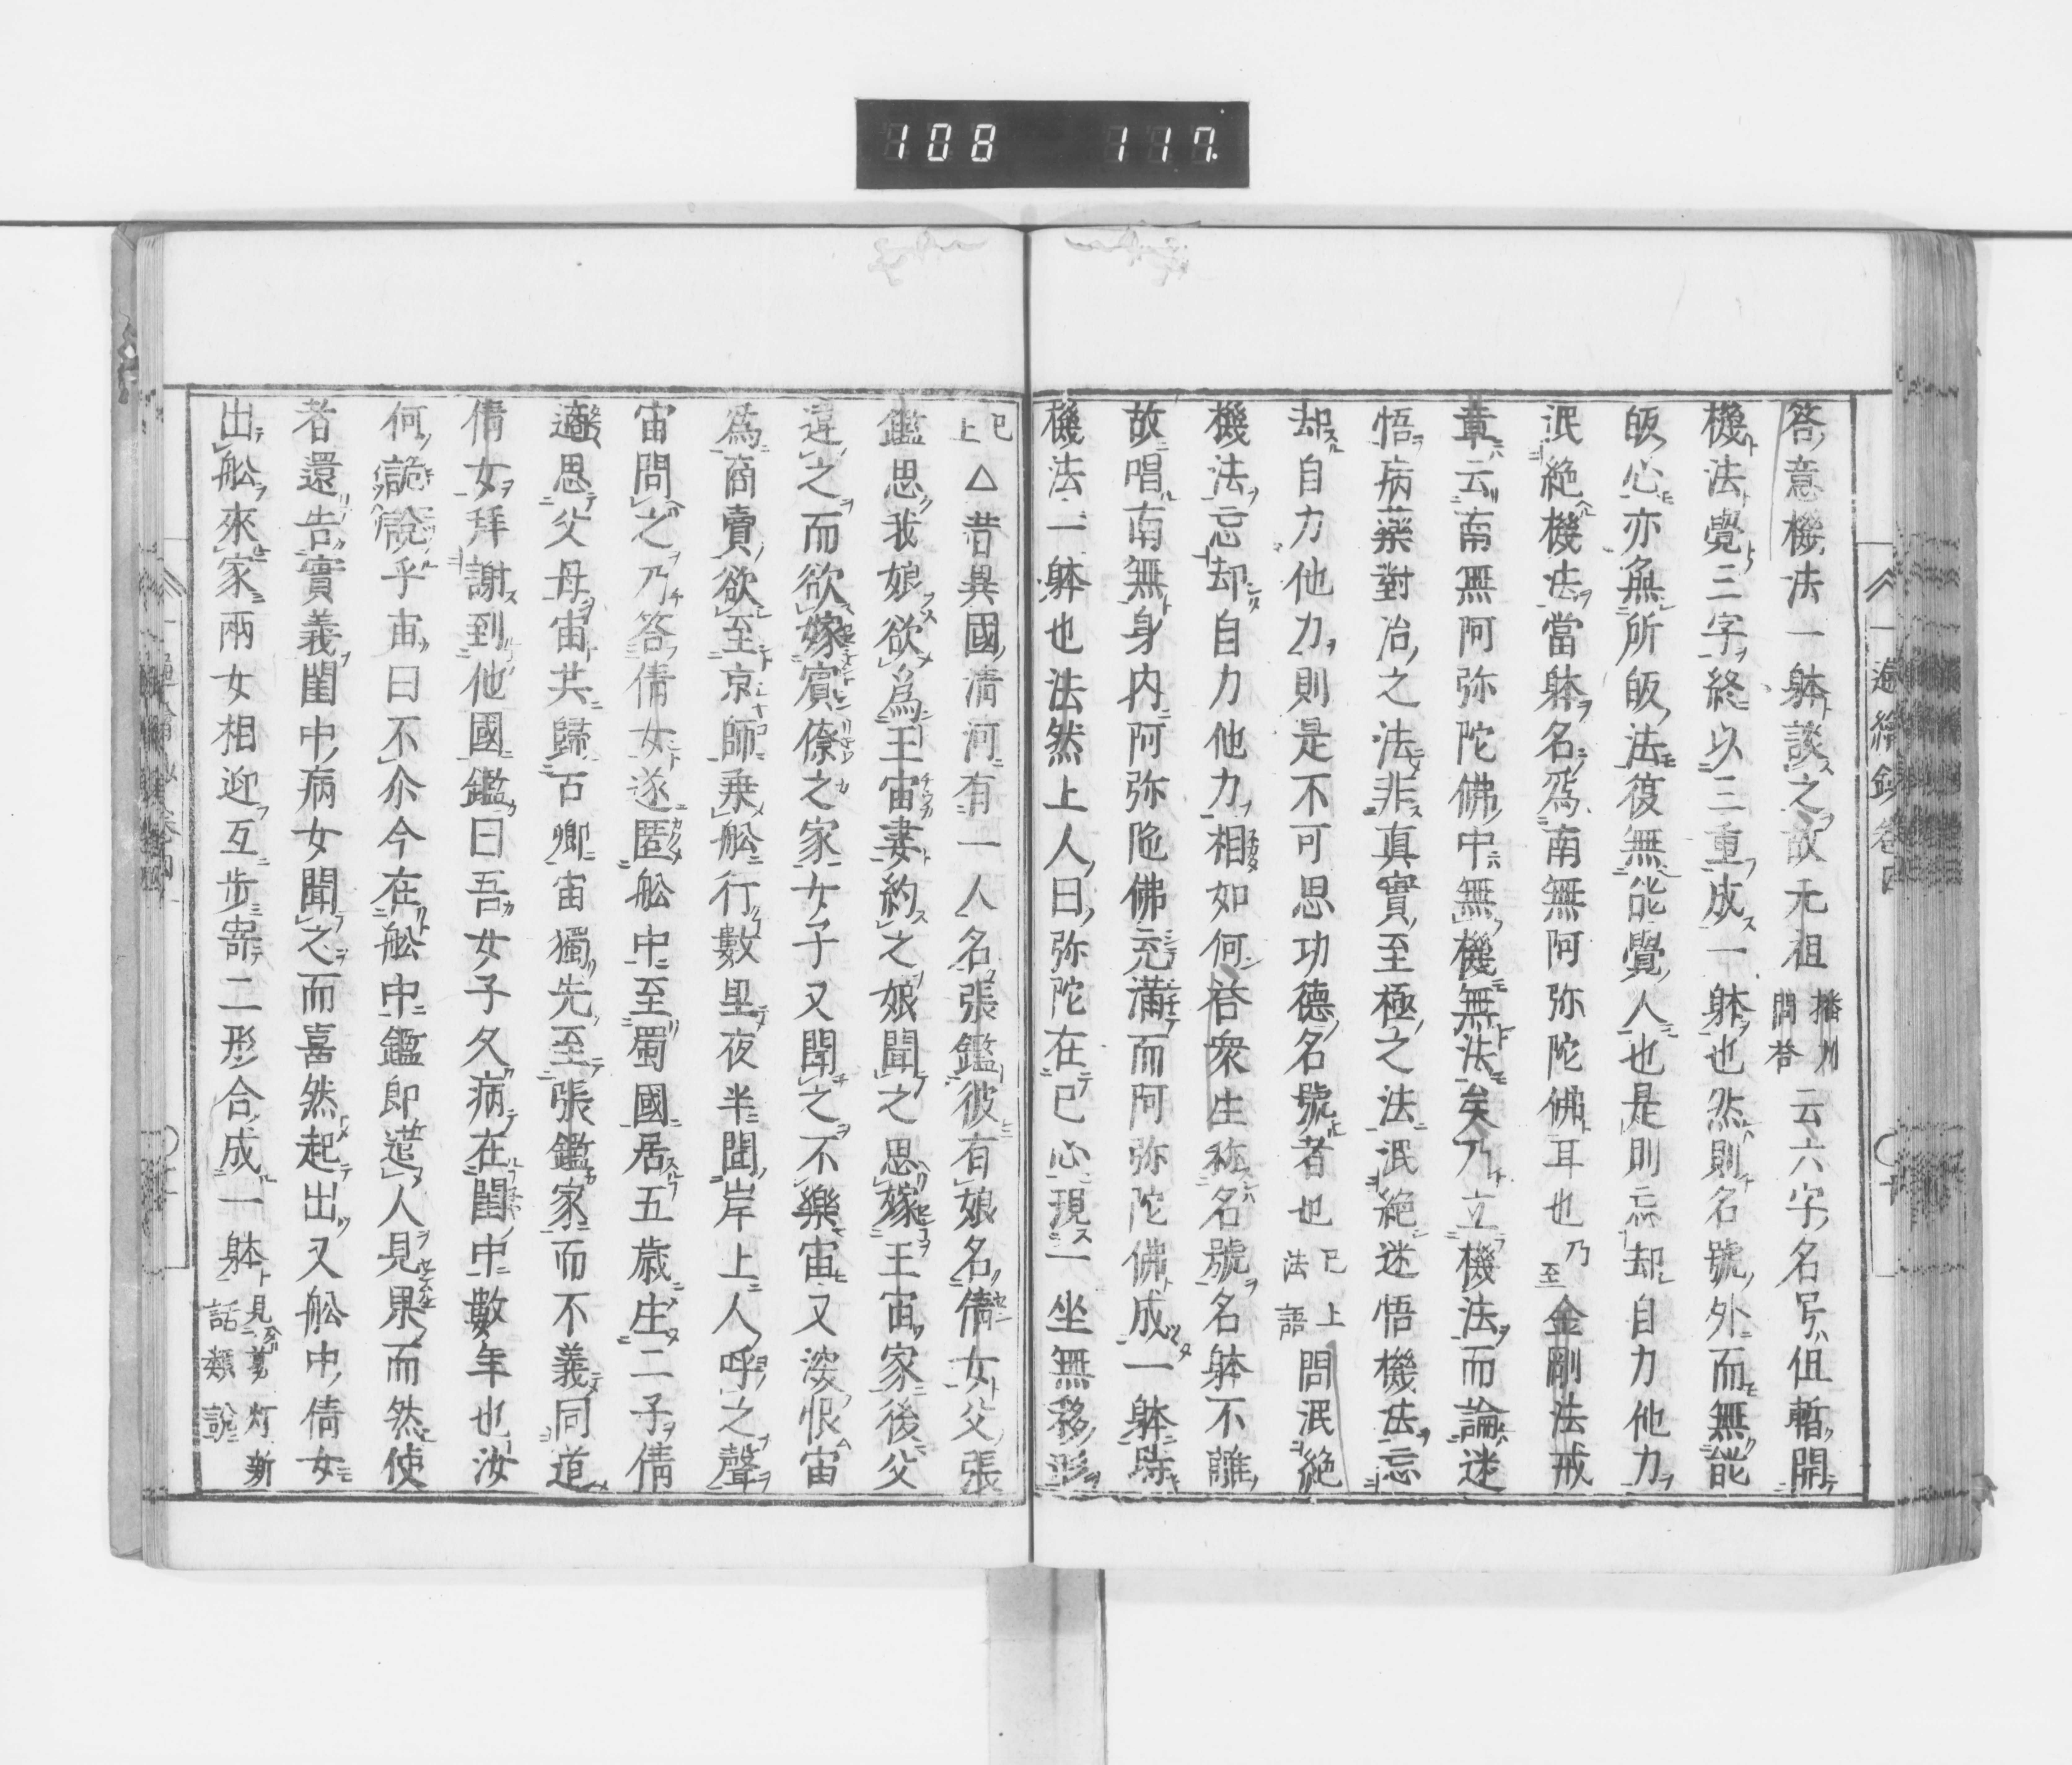 108 117.
答意機法一躰談之故元祖播刕問荅云六字名号但暫開
機法覺三字終以三重成一躰也然則名號外而無能
皈心亦無所皈法復無能覺人也是則忘却自力他力
泯絶機法當躰名爲南無阿弥陀佛耳也乃至金剛法戒
章云南無阿弥陀佛中無機無法矣乃立機法而論迷
悟病藥對治之法非真實至極之法泯絶迷悟機法忘
却自力他力則是不可思功德名號者也已上法語問泯絶
機法忘却自力他力相如何荅衆生称名號名躰不離
故唱南無身内阿弥陁佛充滿而阿弥陀佛成一躰時
機法一躰也法然上人曰弥陀在已心現一坐無移形
已上△昔異國清河有一人名張鑑彼有娘名倩女父張
鑑思我娘欲爲王宙妻約之娘聞之思嫁王宙家後父
違之而欲嫁賓僚之家女子又聞之不樂宙又深恨宙
爲商賣欲至京師乗舩行數里夜半聞岸上人呼之聲
宙問之乃答倩女遂匿舩中至蜀國居五歳生二子倩
適思父母宙共歸古鄉宙獨先至張鑑家而不義同道
倩女拜謝到他國鑑曰吾女子久病在閨中數年也汝
何詭說乎宙曰不尒今在舩中鑑即遣人見果而然使
者還告實義閨中病女聞之而喜然起出又舩中倩女
出舩來家兩女相迎互步寄二形合成一躰見剪灯新話類說